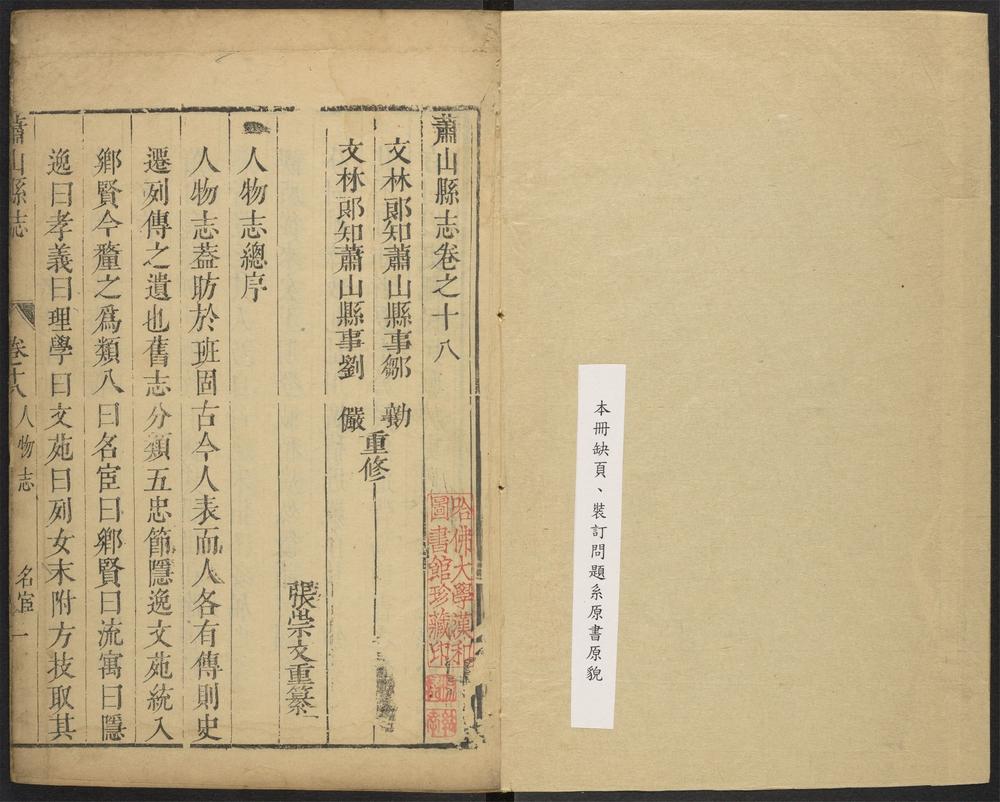 本冊缺頁、裝訂問題系原書原貌
蕭山縣志卷之十八
文林郎知蕭山縣事鄒　勷
文林郎知蕭山縣事劉　儼
重修
張崇文重纂
人物志總序
人物志蓋昉於班固古今人表而人各有傳則史
遷列傳之遺也舊志分類五忠節隱逸文苑統入
鄉賢今釐之爲類八曰名宦曰鄉賢曰流寓曰隱
逸曰孝義曰理學曰文苑曰列女末附方技取其
蕭山縣志　卷十八　人物志　名宦　一
哈佛大學漢和
圖書館珍藏印